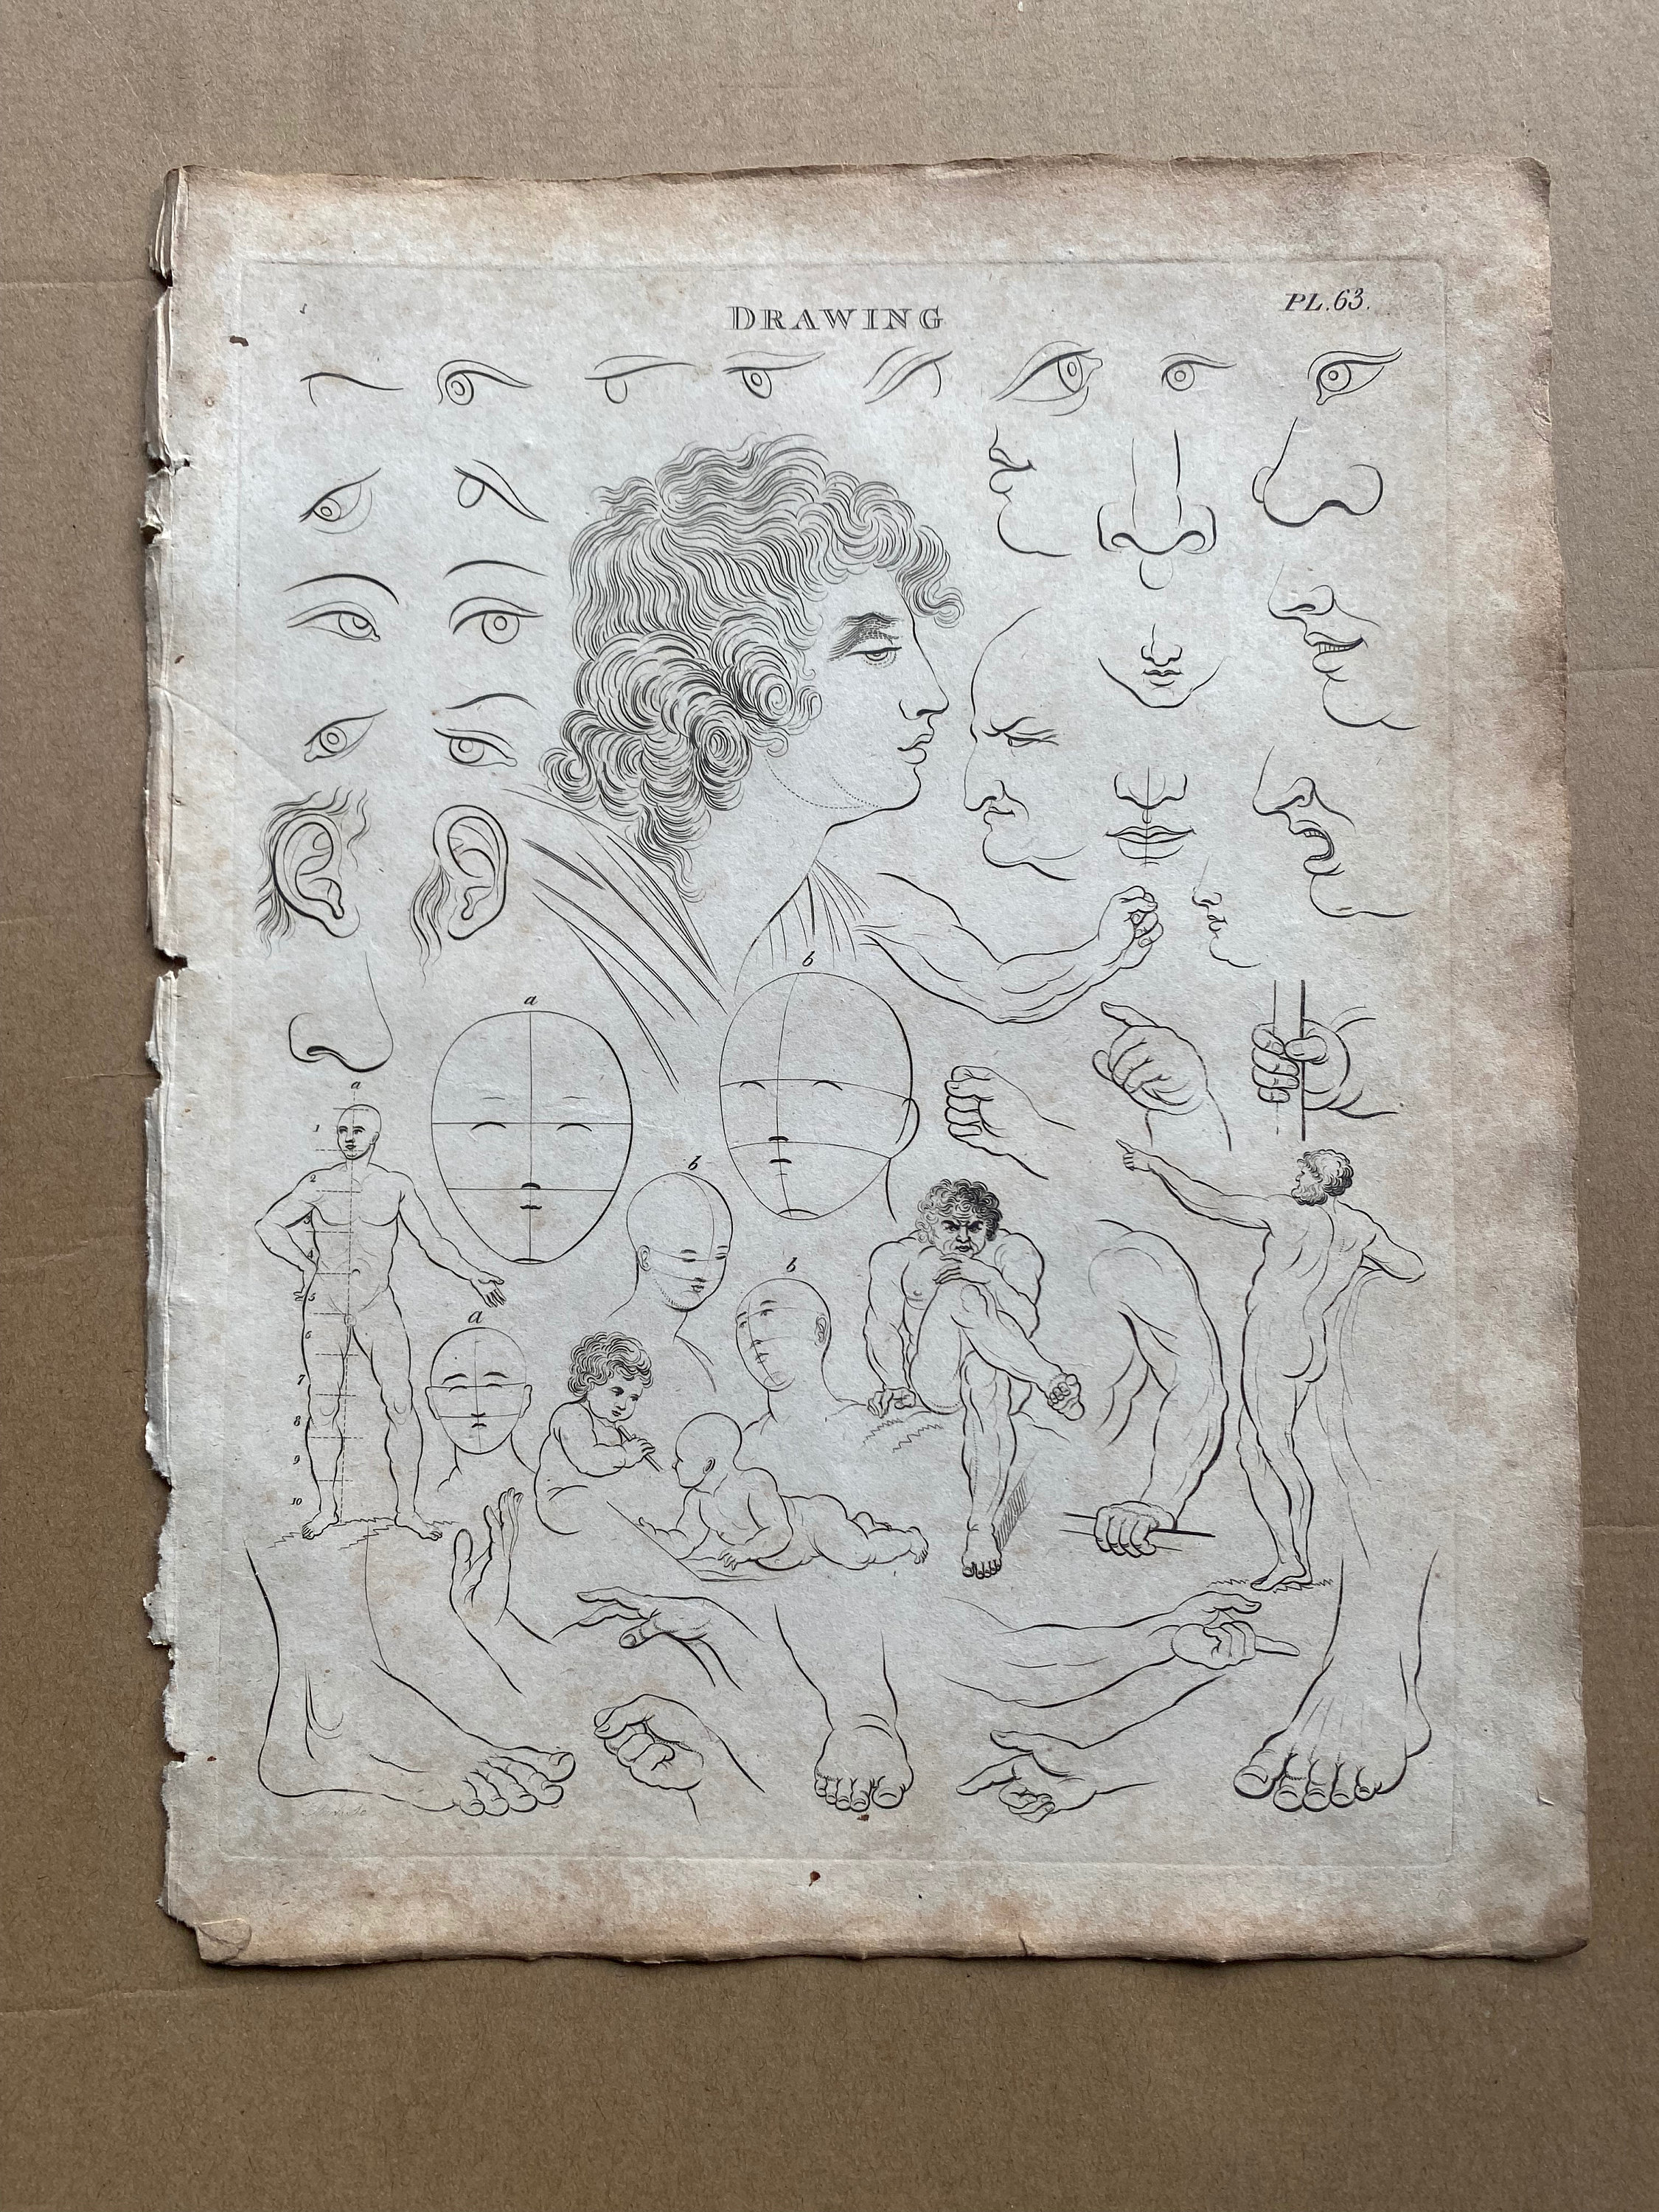 PL.63.
DRAWING
b
a
a
1
b
2
3
4
b
5
a
6
7
8
9
10